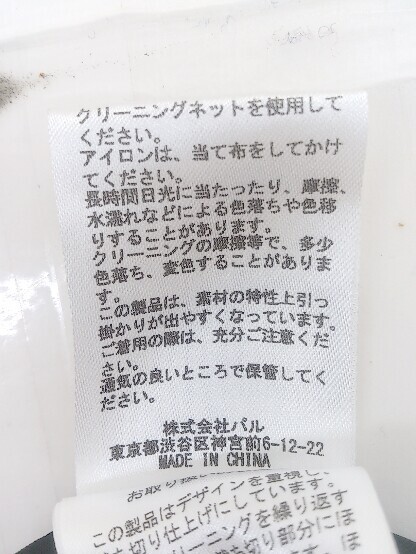 クリーニングネットを使用して
ください。
アイロンは、当て布をしてかけ
てください。
長時間日光に当たったり、摩擦、
水濡れなどによる色落ちや色移
りすることがあります。
クリーニングの摩擦等で、多少
色落ち、変色することがありま
す。
この製品は、素材の特性上引っ
掛かりが出やすくなっています。
ご着用の際は、充分ご注意くだ
さい。
通気の良いところで保管してく
ださい。
株式会社パル
東京都渋谷区神宮前6-12-22
MADE IN CHINA
この製品はデザインを重視し、
切り仕上げにしています。
ーニングを繰り返す
切り部分にほ